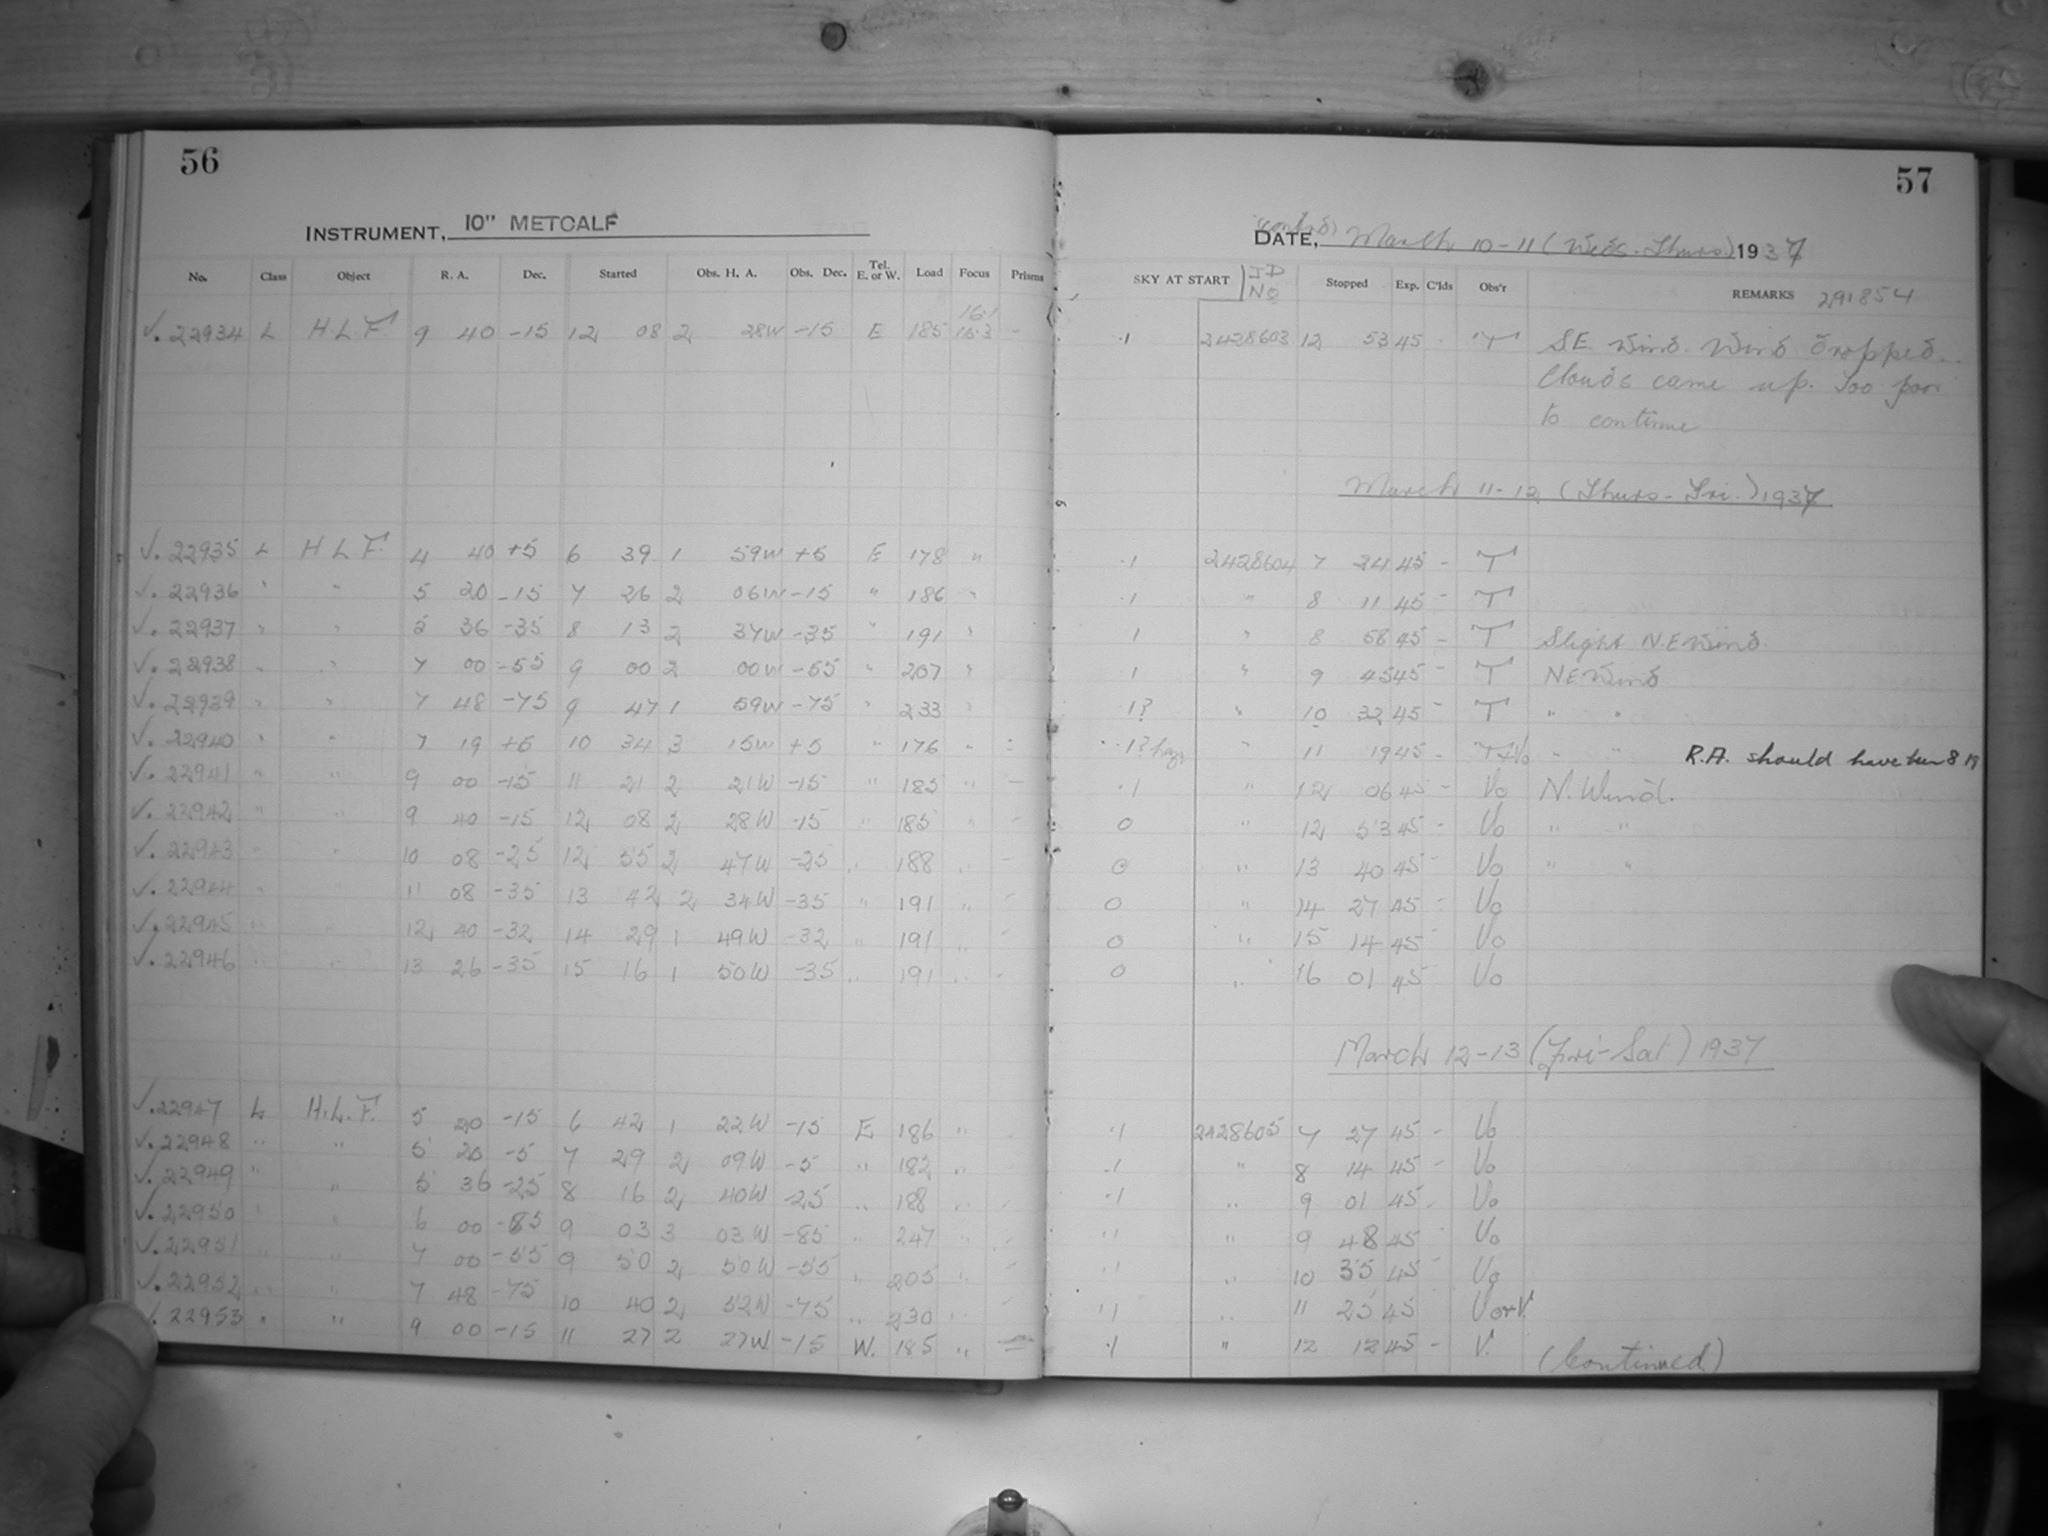 56
INSTRUMENT, 10" METCALF
No. Class Object R. A. Dec. Started Obs. H. A. Obs. Dec. Tel. E. or W. Load Focus Prisms
16.1
√. 22934 L H L F. 9 40 -15 12 08 2 28W -15 E 185 16.3 -
√. 22935 L H L F. 4 40 +5 6 39 1 59W +5 E 178 "
√. 22936 " " 5 20 -15 7 26 2 06W -15 " 186 "
√. 22937 " " 5 36 -35 8 13 2 37W -35 " 191 "
√. 22938 " " 7 00 -55 9 00 2 00W -55 " 207 "
√. 22939 " " 7 48 -75 9 47 1 59W -75 " 233 "
√. 22940 " " 7 19 +5 10 34 3 15W +5 " 176 " -
√. 22941 " " 9 00 -15 11 21 2 21W -15 " 185 " -
√. 22942 " " 9 40 -15 12 08 2 28W -15 " 185 " -
√. 22943 " " 10 08 -25 12 55 2 47W -25 " 188 " -
√. 22944 " " 11 08 -35 13 42 2 34W -35 " 191 " -
√. 22945 " " 12 40 -32 14 29 1 49W -32 " 191 " -
√. 22946 " " 13 26 -35 15 16 1 50W -35 " 191 " -
√. 22947 L H.L.F. 5 20 -15 6 42 1 22W -15 E 186 " -
√. 22948 " " 5 20 -5 7 29 2 09W -5 " 182 " -
√. 22949 " " 5 36 -25 8 16 2 40W -25 " 188 " -
√. 22950 " " 6 00 -85 9 03 3 03W -85 " 247 " -
√. 22951 " " 7 00 -55 9 50 2 50W -55 " 205 " -
√. 22952 " " 7 48 -75 10 40 2 52W -75 " 230 " -
√. 22953 " " 9 00 -15 11 27 2 27W -15 W. 185 " -
57
(contd)
DATE, March 10-11 (Weds-Thurs.) 1937
SKY AT START JD No Stopped Exp. C'lds Obs'r REMARKS 291854
.1 2428603 12 53 45 - T SE. Wind. Wind dropped.
Clouds came up. Too poor
to continue
March 11-12 (Thurs-Fri.) 1937
.1 2428604 7 24 45 - T
.1 " 8 11 45 - T
1 " 8 58 45 - T Slight N.E Wind.
1 " 9 45 45 - T NE Wind
1? " 10 32 45 - T " "
.1? hazy " 11 19 45 - T+Vo " " R.A. should have been 8 19
.1 " 12 06 45 - Vo N. Wind.
0 " 12 53 45 - Vo " "
0 " 13 40 45 - Vo " "
0 " 14 27 45 - Vo
0 " 15 14 45 - Vo
0 " 16 01 45 Vo
March 12-13 (Fri-Sat) 1937
.1 2428605 7 27 45 - Vo
.1 " 8 14 45 - Vo
.1 " 9 01 45 - Vo
" " 9 48 45 - Vo
" " 10 35 45 - Vo
" " 11 25 45 Vo+V.
.1 " 12 12 45 - V.
(Continued)